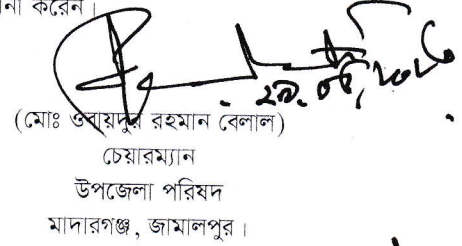 না করেন।
(মোঃ ওবায়দুর রহমান বেলাল)
চেয়ারম্যান
উপজেলা পরিষদ
মাদারগঞ্জ, জামালপুর।